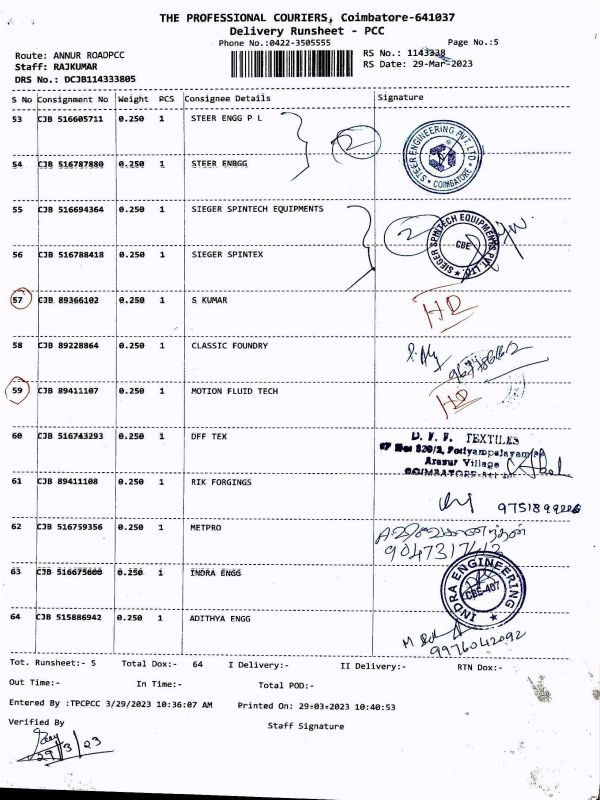 THE PROFESSIONAL COURIERS, Coimbatore-641037
Delivery Runsheet - PCC
Phone No.:0422-3505555
Page No.:5
Route: ANNUR ROADPCC
RS No.: 1143338
Staff: RAJKUMAR
RS Date: 29-Mar-2023
DRS No.: DCJB114333805
S No Consignment No Weight PCS Consignee Details Signature
53 CJB 516605711 0.250 1 STEER ENGG P L
2
STEER ENGINEERING PVT. LTD
* COIMBATORE *
54 CJB 516787880 0.250 1 STEER ENBGG
55 CJB 516694364 0.250 1 SIEGER SPINTECH EQUIPMENTS
2
SIEGER SPINTECH EQUIPMENTS PVT. LTD.
CBE
56 CJB 516788418 0.250 1 SIEGER SPINTEX
57 CJB 89366102 0.250 1 S KUMAR
HD
58 CJB 89228864 0.250 1 CLASSIC FOUNDRY
59 CJB 89411107 0.250 1 MOTION FLUID TECH
HD
60 CJB 516743293 0.250 1 DFF TEX
TEXTILES
820/2, Pottyampalayam
Arasur Village
COIMBATORE
61 CJB 89411108 0.250 1 RIK FORGINGS
62 CJB 516759356 0.250 1 METPRO
9047317412
63 CJB 516675608 0.250 1 INDRA ENGG
INDRA ENGINEERING
CBE-407
64 CJB 515886942 0.250 1 ADITHYA ENGG
9976042092
Tot. Runsheet:- 5 Total Dox:- 64 I Delivery:- II Delivery:- RTN Dox:-
Out Time:- In Time:- Total POD:-
Entered By :TPCPCC 3/29/2023 10:36:07 AM Printed On: 29-03-2023 10:40:53
Verified By
Staff Signature
29/3/23